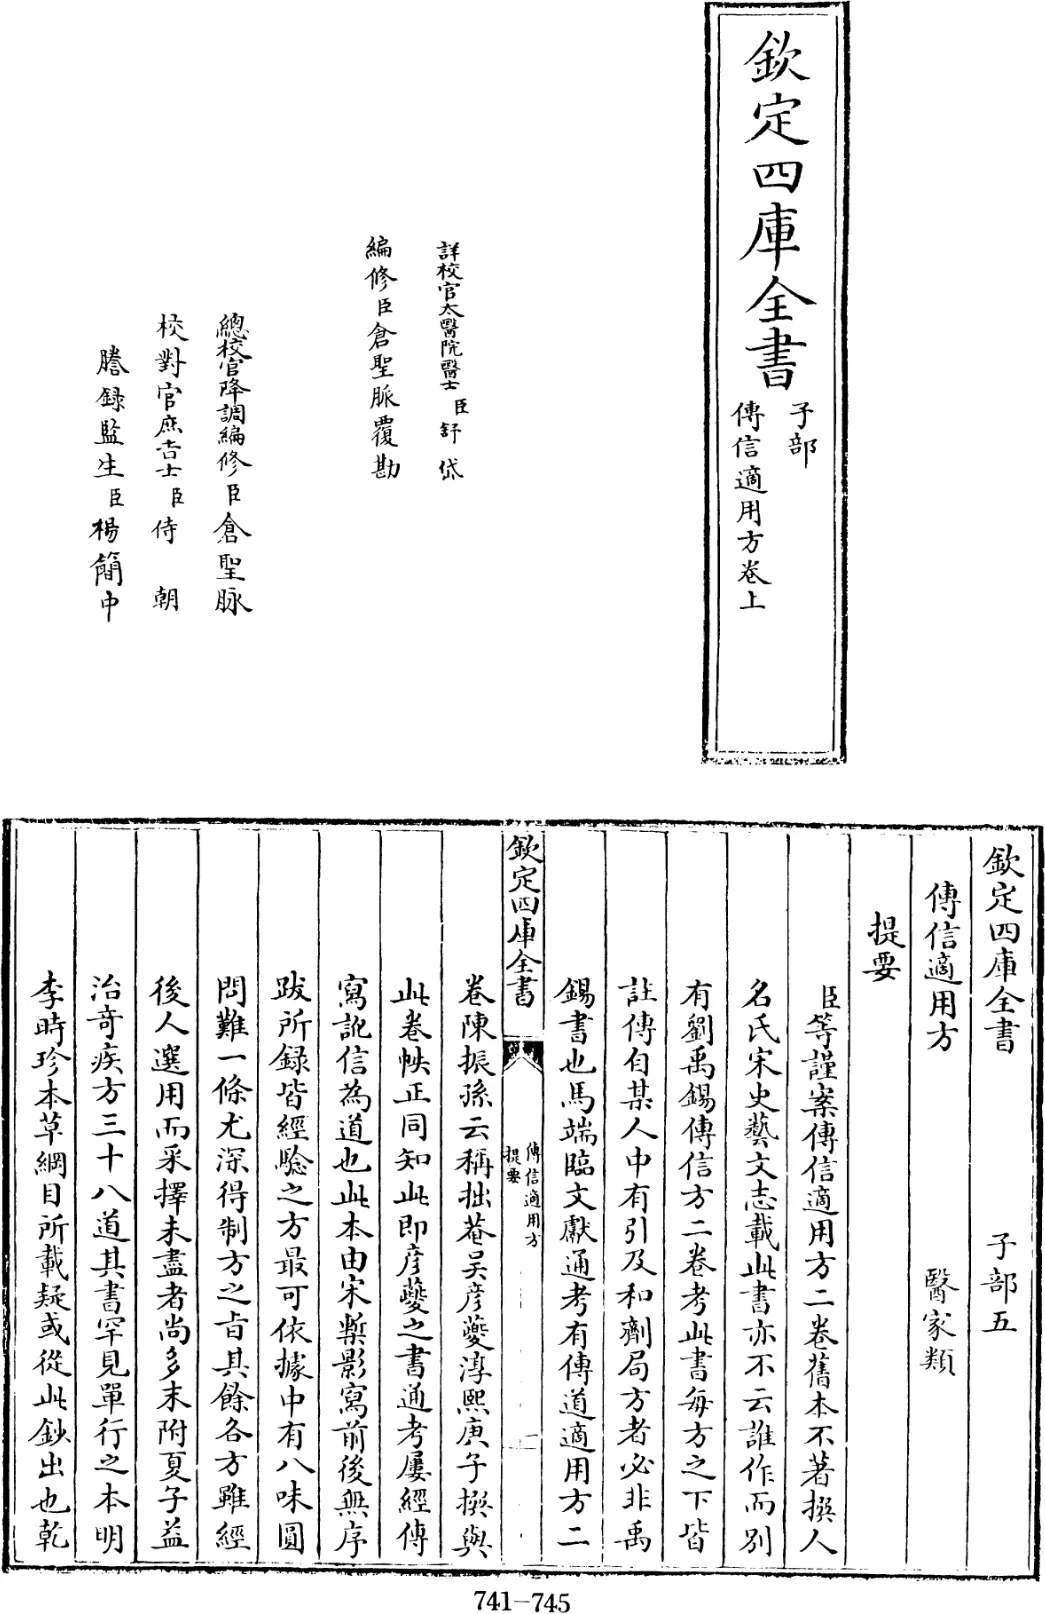 欽定四庫全書
子部
傳信適用方卷上
詳校官太醫院醫士臣舒岱
編修臣倉聖脈覆勘
總校官降調編修臣倉聖脉
校對官庶吉士臣侍朝
謄錄監生臣楊簡中
欽定四庫全書 子部五
傳信適用方 醫家類
提要
臣等謹案傳信適用方二卷舊本不著撰人
名氏宋史藝文志載此書亦不云誰作而別
有劉禹錫傳信方二卷考此書每方之下皆
註傳自某人中有引及和劑局方者必非禹
錫書也馬端臨文獻通考有傳道適用方二
欽定四庫全書
傳信適用方
提要
一
卷陳振孫云稱拙菴吳彦夔淳熙庚子撰與
此卷帙正同知此即彦夔之書通考屢經傳
寫訛信為道也此本由宋槧影寫前後無序
跋所録皆經驗之方最可依據中有八味圓
問難一條尤深得制方之旨其餘各方雖經
後人選用而采擇未盡者尚多末附夏子益
治奇疾方三十八道其書罕見單行之本明
李時珍本草綱目所載疑或從此鈔出也乾
741-745